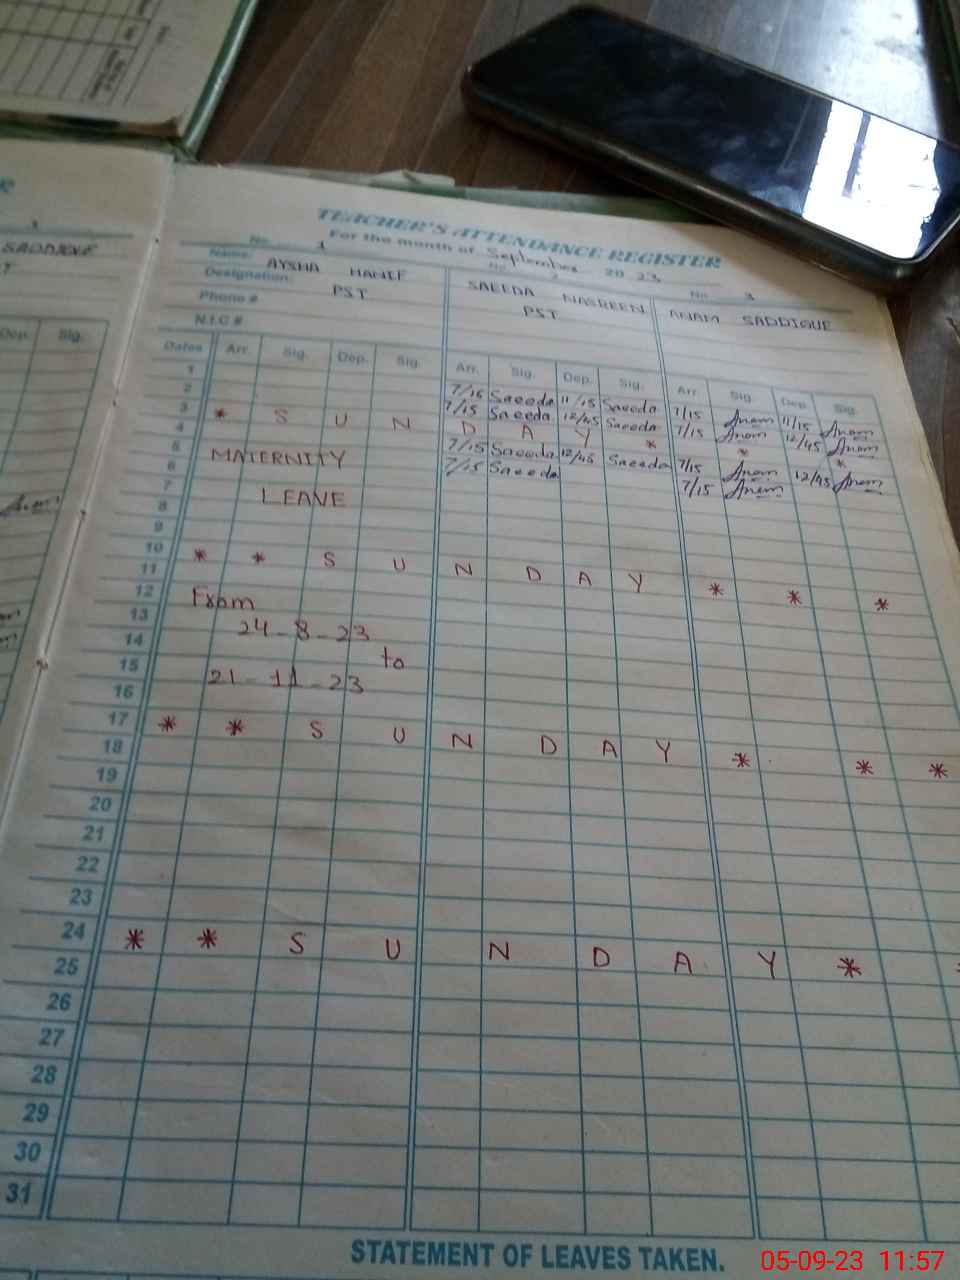 SADDIQUE
Dep. Sig.
Anam
TEACHER'S ATTENDANCE REGISTER
For the month of September 2023
No. 1 No. 2 No. 3
Name: AYSHA HANIF SAEEDA NASREEN ANAM SADDIQUE
Designation: PST PST
Phone #
N.I.C #
Dates Arr. Sig. Dep. Sig. Arr. Sig. Dep. Sig. Arr. Sig. Dep. Sig.
1 7/15 Saeeda 11/15 Saeeda 7/15 Anam 11/15 Anam
2 7/15 Saeeda 12/45 Saeeda 7/15 Anam 12/45 Anam
3 * S U N D A Y * * *
4 7/15 Saeeda 12/45 Saeeda 7/15 Anam 12/45 Anam
5 MATERNITY 7/15 Saeeda 7/15 Anam
6
7 LEAVE
8
9
10 * * S U N D A Y * * *
11
12 From
13 24-8-23
14 to
15
16 21-11-23
17 * * S U N D A Y * * *
18
19
20
21
22
23
24 * * S U N D A Y *
25
26
27
28
29
30
31
STATEMENT OF LEAVES TAKEN.
05-09-23 11:57